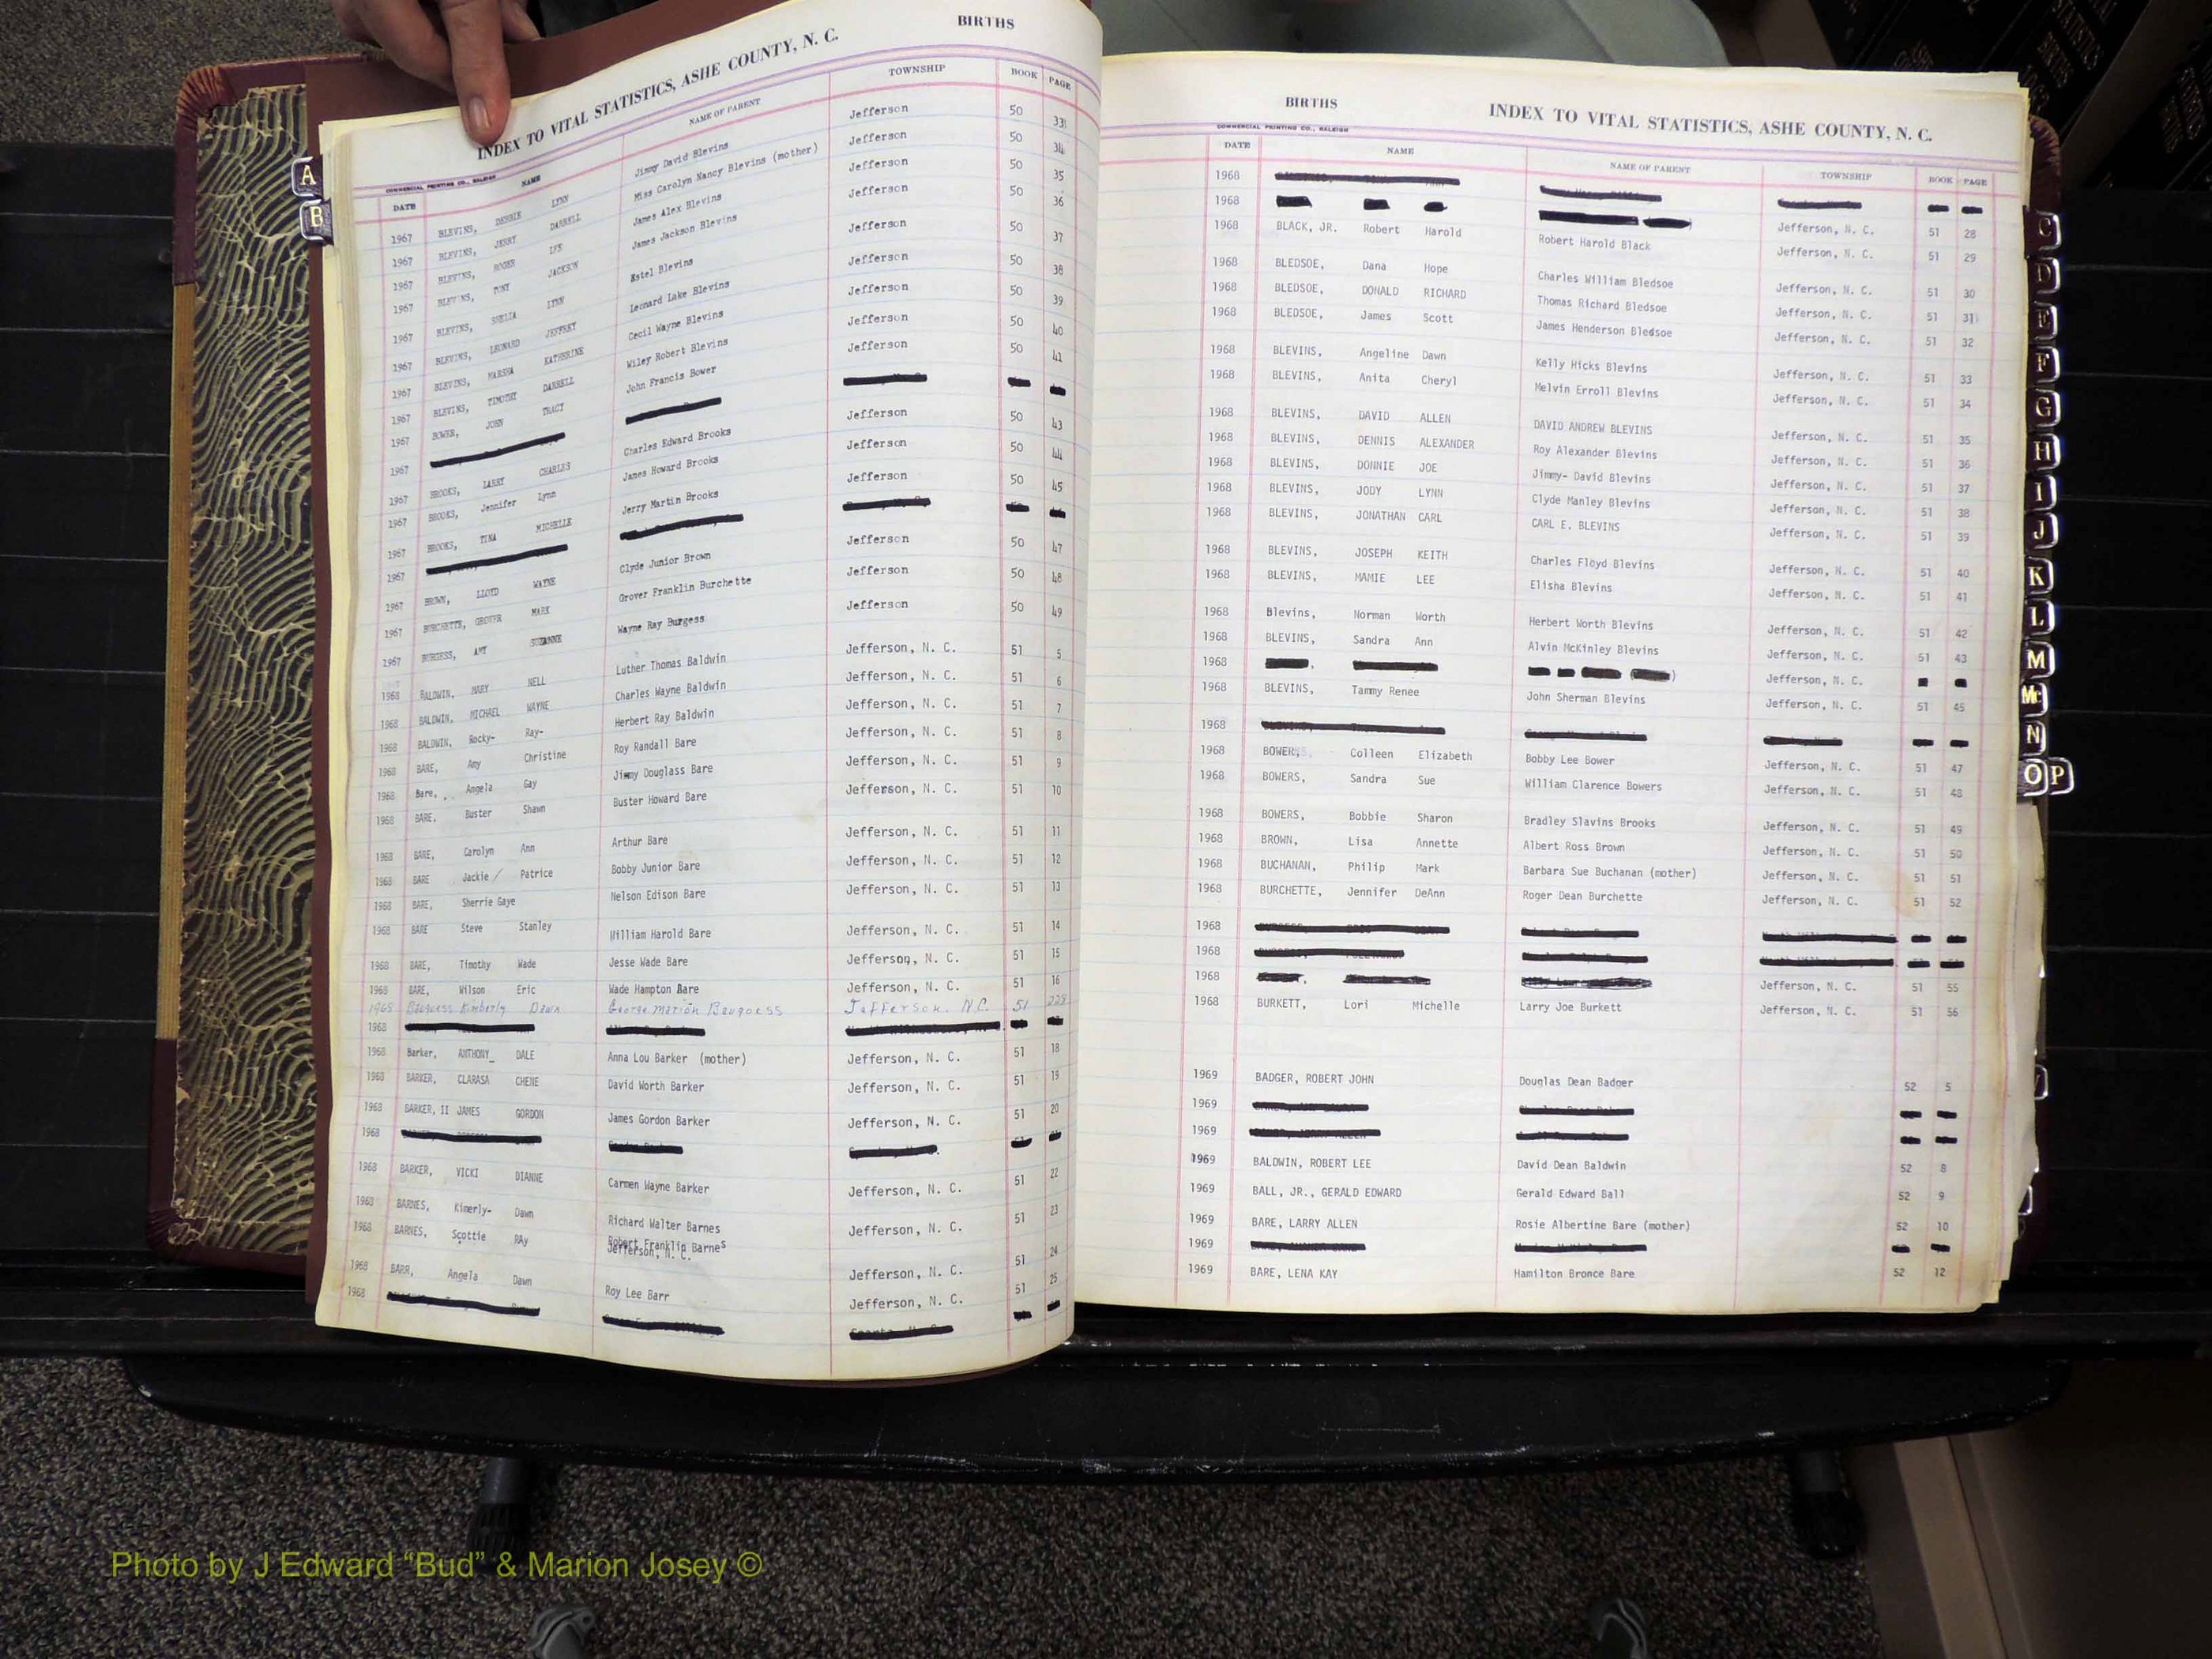 BIRTHS
INDEX TO VITAL STATISTICS, ASHE COUNTY, N. C.
COMMERCIAL PRINTING CO., RALEIGH
DATE NAME NAME OF PARENT TOWNSHIP BOOK PAGE
1967 BLEVINS, DEBBIE LYNN Jimmy David Blevins Jefferson 50 33
1967 BLEVINS, JERRY DARRELL Miss Carolyn Nancy Blevins (mother) Jefferson 50 34
1967 BLEVINS, ROGER LEE James Alex Blevins Jefferson 50 35
1967 BLEVINS, TONY JACKSON James Jackson Blevins Jefferson 50 36
1967 BLEVINS, SHELIA LYNN Estel Blevins Jefferson 50 37
1967 BLEVINS, LEONARD JEFFREY Leonard Lake Blevins Jefferson 50 38
1967 BLEVINS, MARSHA KATHERINE Cecil Wayne Blevins Jefferson 50 39
1967 BLEVINS, TIMOTHY DARRELL Wiley Robert Blevins Jefferson 50 40
1967 BOWER, JOHN TRACY John Francis Bower Jefferson 50 41
1967
1967 BROOKS, LARRY CHARLES Charles Edward Brooks Jefferson 50 43
1967 BROOKS, Jennifer Lynn James Howard Brooks Jefferson 50 44
1967 BROOKS, TINA MICHELLE Jerry Martin Brooks Jefferson 50 45
1967
1967 BROWN, LLOYD WAYNE Clyde Junior Brown Jefferson 50 47
1967 BURCHETTE, GROVER MARK Grover Franklin Burchette Jefferson 50 48
1967 BURGESS, AMY SUZANNE Wayne Ray Burgess Jefferson 50 49
1968 BALDWIN, MARY NELL Luther Thomas Baldwin Jefferson, N. C. 51 5
1968 BALDWIN, MICHAEL WAYNE Charles Wayne Baldwin Jefferson, N. C. 51 6
1968 BALDWIN, Rocky- Ray- Herbert Ray Baldwin Jefferson, N. C. 51 7
1968 BARE, Amy Christine Roy Randall Bare Jefferson, N. C. 51 8
1968 Bare, Angela Gay Jimmy Douglass Bare Jefferson, N. C. 51 9
1968 BARE, Buster Shawn Buster Howard Bare Jefferson, N. C. 51 10
1968 BARE, Carolyn Ann Arthur Bare Jefferson, N. C. 51 11
1968 BARE Jackie / Patrice Bobby Junior Bare Jefferson, N. C. 51 12
1968 BARE, Sherrie Gaye Nelson Edison Bare Jefferson, N. C. 51 13
1968 BARE Steve Stanley William Harold Bare Jefferson, N. C. 51 14
1968 BARE, Timothy Wade Jesse Wade Bare Jefferson, N. C. 51 15
1968 BARE, Wilson Eric Wade Hampton Bare Jefferson, N. C. 51 16
1968 Baugess Kimberly Dawn George Marion Baugess Jefferson. N.C. 51 225
1968
1968 Barker, ANTHONY DALE Anna Lou Barker (mother) Jefferson, N. C. 51 18
1968 BARKER, CLARASA CHENE David Worth Barker Jefferson, N. C. 51 19
1968 BARKER, II JAMES GORDON James Gordon Barker Jefferson, N. C. 51 20
1968
1968 BARKER, VICKI DIANNE Carmen Wayne Barker Jefferson, N. C. 51 22
1968 BARNES, Kimerly- Dawn Richard Walter Barnes Jefferson, N. C. 51 23
1968 BARNES, Scottie RAy Robert Franklin Barnes Jefferson, N. C. 51 24
Jefferson, N. C.
1968 BARR, Angela Dawn Roy Lee Barr Jefferson, N. C. 51 25
1968
BIRTHS
INDEX TO VITAL STATISTICS, ASHE COUNTY, N. C.
COMMERCIAL PRINTING CO., RALEIGH
DATE NAME NAME OF PARENT TOWNSHIP BOOK PAGE
1968
1968 Jefferson, N. C. 51 28
1968 BLACK, JR. Robert Harold Robert Harold Black Jefferson, N. C. 51 29
1968 BLEDSOE, Dana Hope Charles William Bledsoe Jefferson, N. C. 51 30
1968 BLEDSOE, DONALD RICHARD Thomas Richard Bledsoe Jefferson, N. C. 51 31
1968 BLEDSOE, James Scott James Henderson Bledsoe Jefferson, N. C. 51 32
1968 BLEVINS, Angeline Dawn Kelly Hicks Blevins Jefferson, N. C. 51 33
1968 BLEVINS, Anita Cheryl Melvin Erroll Blevins Jefferson, N. C. 51 34
1968 BLEVINS, DAVID ALLEN DAVID ANDREW BLEVINS Jefferson, N. C. 51 35
1968 BLEVINS, DENNIS ALEXANDER Roy Alexander Blevins Jefferson, N. C. 51 36
1968 BLEVINS, DONNIE JOE Jimmy- David Blevins Jefferson, N. C. 51 37
1968 BLEVINS, JODY LYNN Clyde Manley Blevins Jefferson, N. C. 51 38
1968 BLEVINS, JONATHAN CARL CARL E. BLEVINS Jefferson, N. C. 51 39
1968 BLEVINS, JOSEPH KEITH Charles Floyd Blevins Jefferson, N. C. 51 40
1968 BLEVINS, MAMIE LEE Elisha Blevins Jefferson, N. C. 51 41
1968 Blevins, Norman Worth Herbert Worth Blevins Jefferson, N. C. 51 42
1968 BLEVINS, Sandra Ann Alvin McKinley Blevins Jefferson, N. C. 51 43
1968 Jefferson, N. C.
1968 BLEVINS, Tammy Renee John Sherman Blevins Jefferson, N. C. 51 45
1968
1968 BOWER, Colleen Elizabeth Bobby Lee Bower Jefferson, N. C. 51 47
1968 BOWERS, Sandra Sue William Clarence Bowers Jefferson, N. C. 51 48
1968 BOWERS, Bobbie Sharon Bradley Slavins Brooks Jefferson, N. C. 51 49
1968 BROWN, Lisa Annette Albert Ross Brown Jefferson, N. C. 51 50
1968 BUCHANAN, Philip Mark Barbara Sue Buchanan (mother) Jefferson, N. C. 51 51
1968 BURCHETTE, Jennifer DeAnn Roger Dean Burchette Jefferson, N. C. 51 52
1968
1968
1968 Jefferson, N. C. 51 55
1968 BURKETT, Lori Michelle Larry Joe Burkett Jefferson, N. C. 51 56
1969 BADGER, ROBERT JOHN Douglas Dean Badger 52 5
1969
1969
1969 BALDWIN, ROBERT LEE David Dean Baldwin 52 8
1969 BALL, JR., GERALD EDWARD Gerald Edward Ball 52 9
1969 BARE, LARRY ALLEN Rosie Albertine Bare (mother) 52 10
1969
1969 BARE, LENA KAY Hamilton Bronce Bare 52 12
A
B
C
D
E
F
G
H
I
J
K
L
M
Mc
N
O P
STATISTICS
Photo by J Edward “Bud” & Marion Josey ©